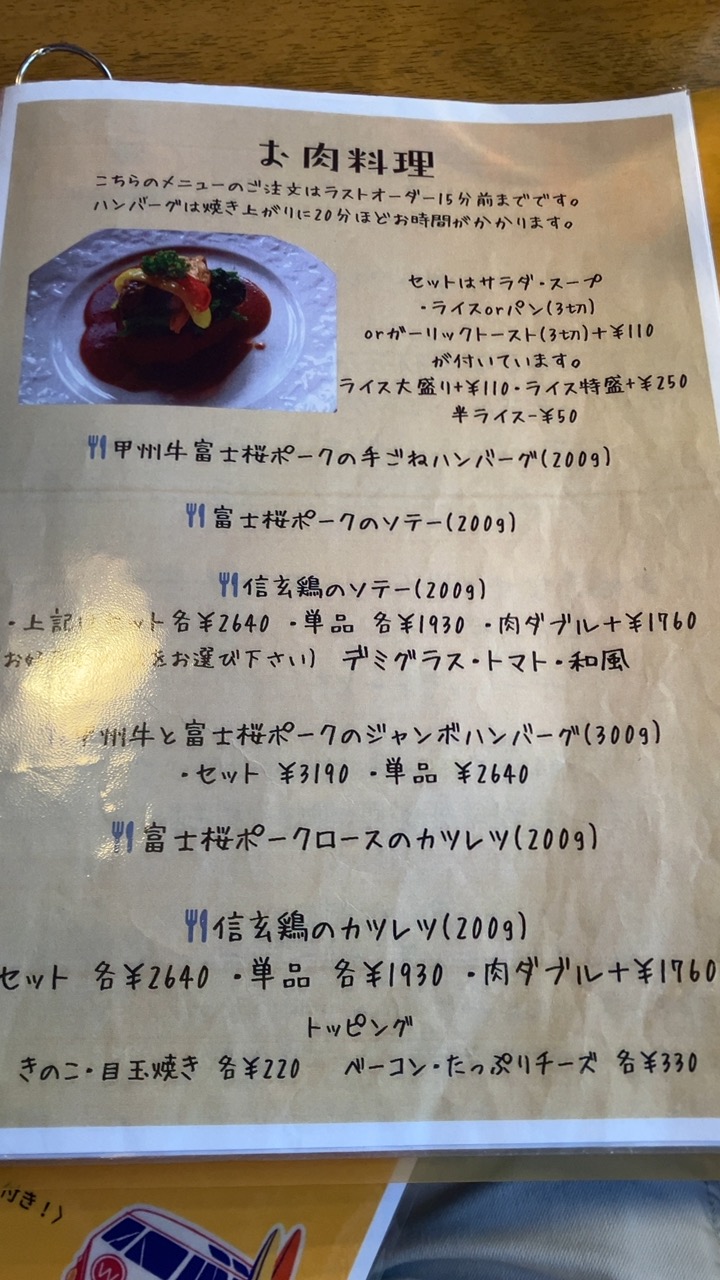 お肉料理
こちらのメニューのご注文はラストオーダー15分前までです。
ハンバーグは焼き上がりに20分ほどお時間がかかります。
セットはサラダ・スープ
・ライスorパン(3切)
orガーリックトースト(3切)+¥110
が付いています。
ライス大盛り+¥110・ライス特盛+¥250
半ライス-¥50
甲州牛富士桜ポークの手ごねハンバーグ(200g)
富士桜ポークのソテー(200g)
信玄鶏のソテー(200g)
・上記 ット 各¥2640 ・単品 各¥1930 ・肉ダブル+¥1760
お をお選び下さい) デミグラス・トマト・和風
州牛と富士桜ポークのジャンボハンバーグ(300g)
・セット ¥3190 ・単品 ¥2640
富士桜ポークロースのカツレツ(200g)
信玄鶏のカツレツ(200g)
セット 各¥2640 ・単品 各¥1930 ・肉ダブル+¥1760
トッピング
きのこ・目玉焼き 各¥220 ベーコン・たっぷりチーズ 各¥330
付き!〉